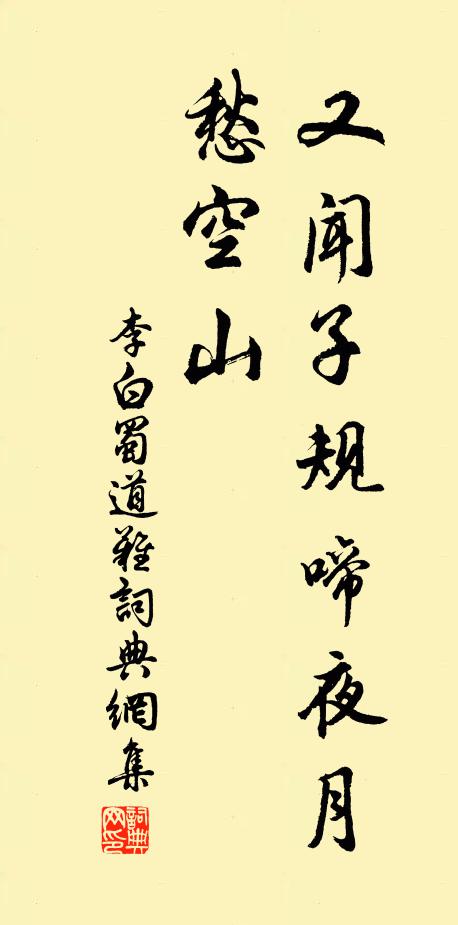 又聞子規啼夜月
愁空山
李白蜀道難詞典網集
詞典
网印